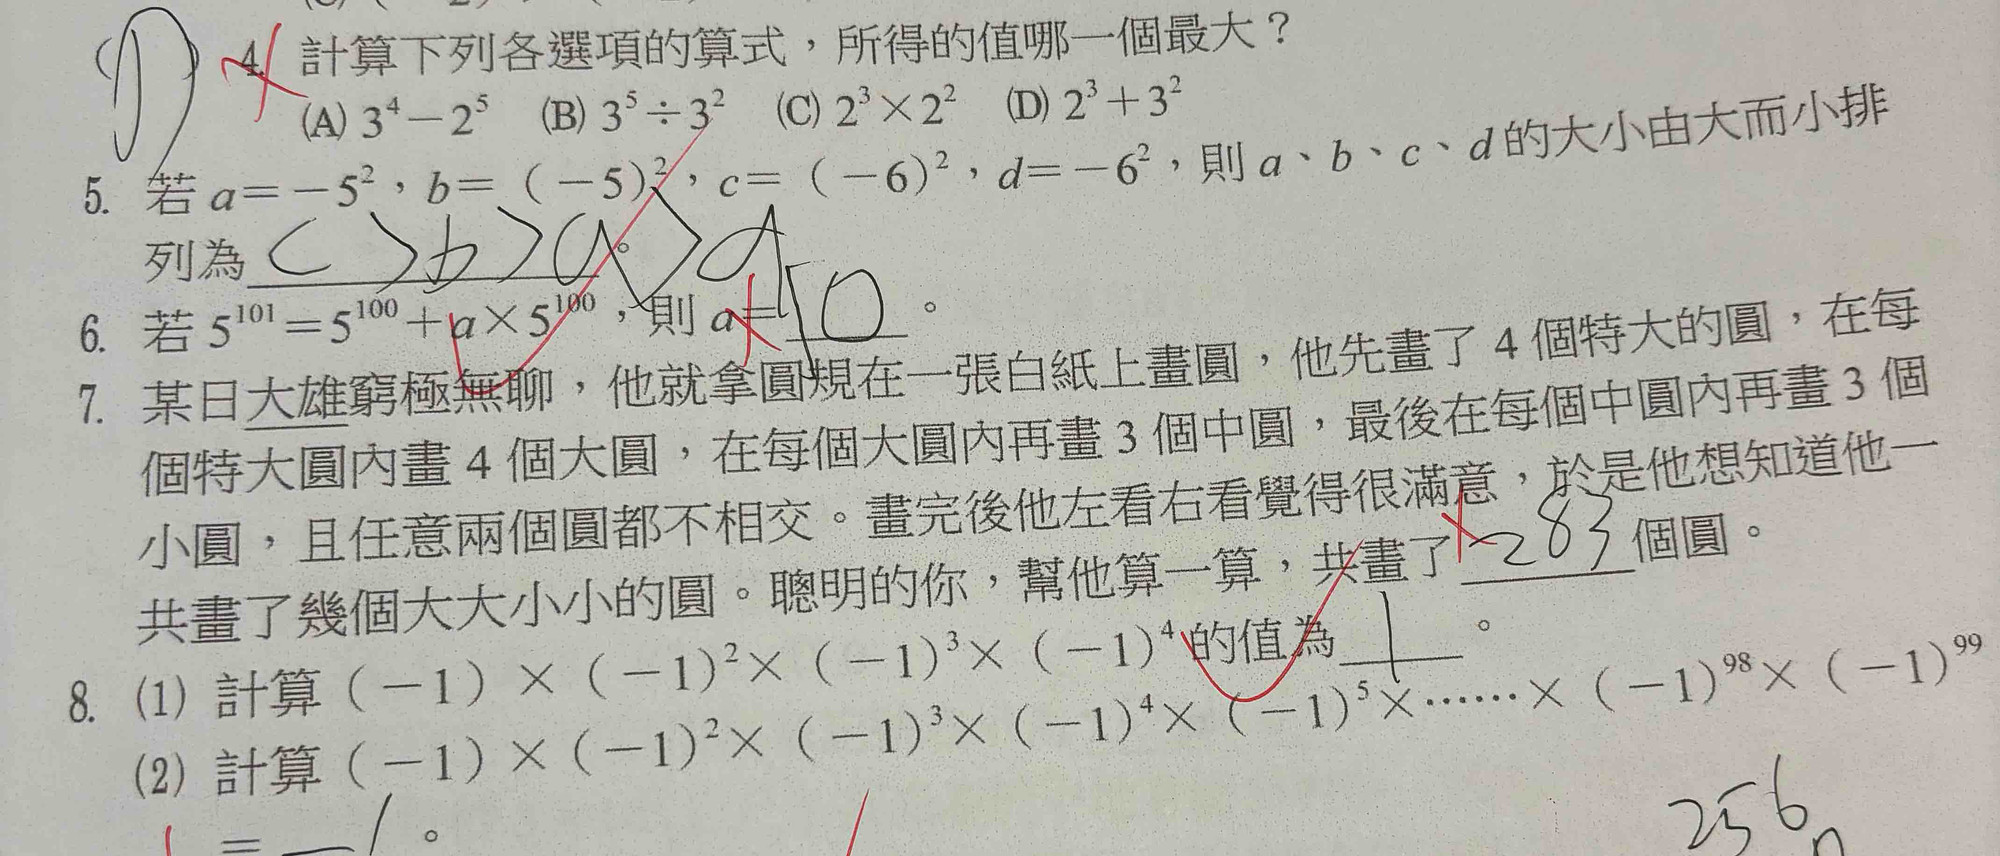 (D) 4. 計算下列各選項的算式，所得的值哪一個最大？
(A) 3⁴－2⁵ (B) 3⁵÷3² (C) 2³×2² (D) 2³＋3²
5. 若 a＝－5²，b＝（－5）²，c＝（－6）²，d＝－6²，則 a、b、c、d 的大小由大而小排
列為 c>b>a>d。
6. 若 5¹⁰¹＝5¹⁰⁰＋a×5¹⁰⁰，則 a＝10。
7. 某日大雄窮極無聊，他就拿圓規在一張白紙上畫圓，他先畫了 4 個特大的圓，在每
個特大圓內畫 4 個大圓，在每個大圓內再畫 3 個中圓，最後在每個中圓內再畫 3 個
小圓，且任意兩個圓都不相交。畫完後他左看右看覺得很滿意，於是他想知道他一
共畫了幾個大大小小的圓。聰明的你，幫他算一算，共畫了 283 個圓。
8. (1) 計算（－1）×（－1）²×（－1）³×（－1）⁴ 的值為 1。
(2) 計算（－1）×（－1）²×（－1）³×（－1）⁴×（－1）⁵×……×（－1）⁹⁸×（－1）⁹⁹
＝ －1。
256